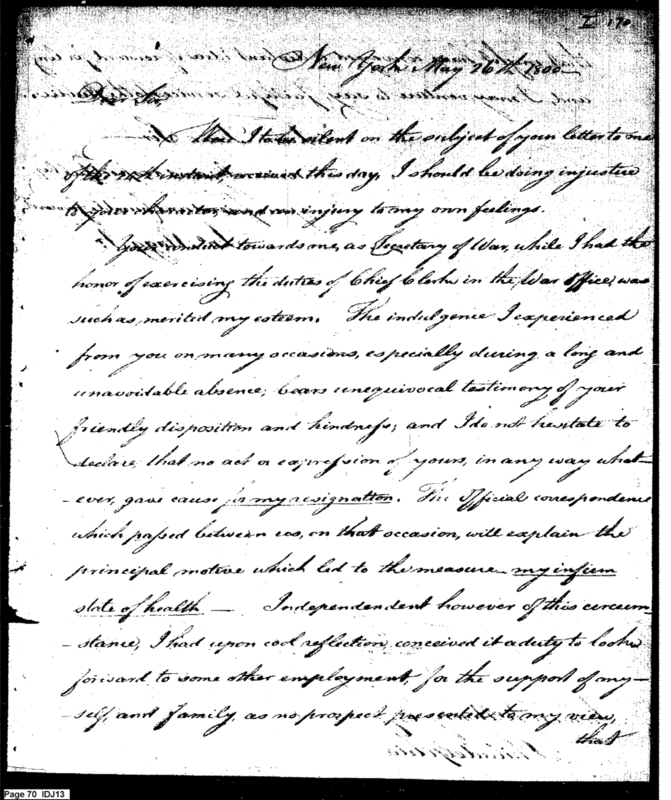 I 170
New York May 26th 1800
Dear Sir,
Were I to be silent on the subject of your letter to me
of the 24th instant, received this day, I should be doing injustice
to your character, and an injury to my own feelings.
Your conduct towards me, as Secretary of War, while I had the
honor of exercising the duties of Chief Clerk in the War Office, was
such as merited my esteem. The indulgence I experienced
from you on many occasions, especially during a long and
unavoidable absence, bears unequivocal testimony of your
friendly disposition and kindness; and I do not hesitate to
declare, that no act or expression of yours, in any way what-
-ever, gave cause for my resignation. The official correspondence
which passed between us, on that occasion, will explain the
principal motive which led to the measure my infirm
state of health — Independent however of this circum-
-stance, I had upon cool reflection, conceived it a duty to look
forward to some other employment, for the support of my-
-self, and family, as no prospect presented to my view,
that
Page 70 IDJ13